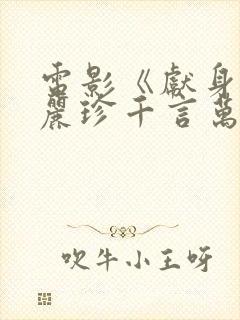 電影《獻身
麗珍千言萬
吹牛小王呀